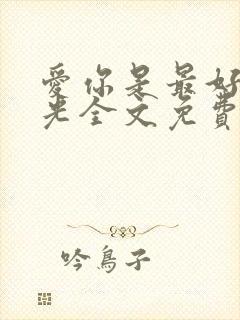 愛你是最好
光全文免費
吟鳥子